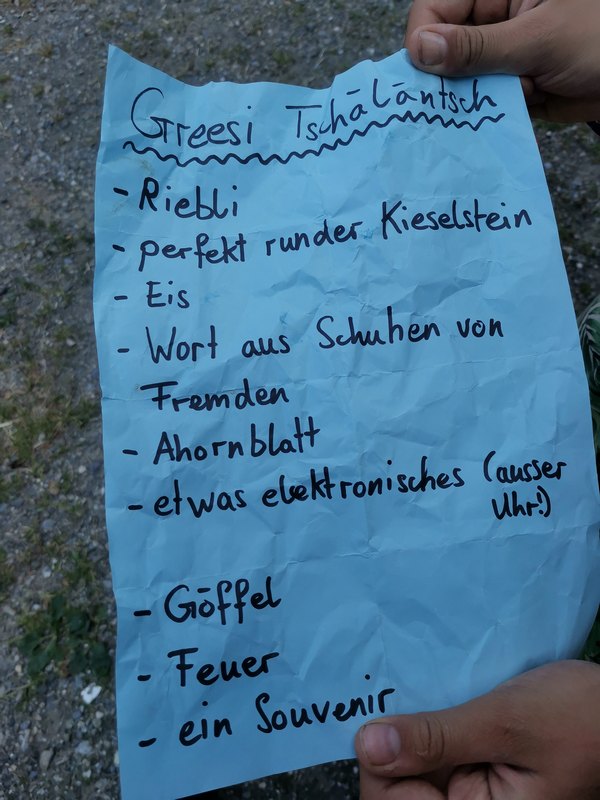 Greesi Tschäläntsch
- Riebli
- perfekt runder Kieselstein
- Eis
- Wort aus Schuhen von
Fremden
- Ahornblatt
- etwas elektronisches (ausser
Uhr!)
- Göffel
- Feuer
- ein Souvenir